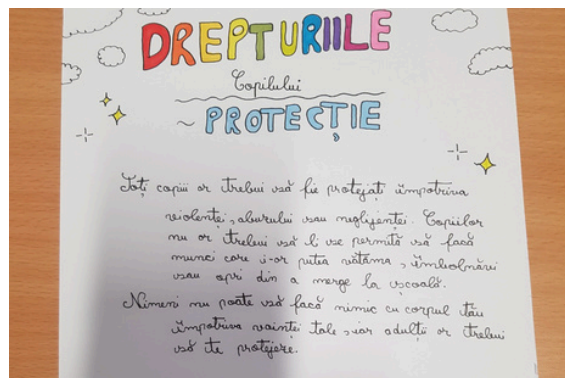 DREPTURIILE
Copilului
~ PROTECȚIE
Toți copiii ar trebui să fie protejați împotriva
violenței, abuzului sau neglijenței. Copiilor
nu ar trebui să li se permită să facă
munci care i-ar putea vătăma, îmbolnăvi
sau opri din a merge la școală.
Nimeni nu poate să facă nimic cu corpul tău
împotriva voinței tale, iar adulții ar trebui
să te protejeze.